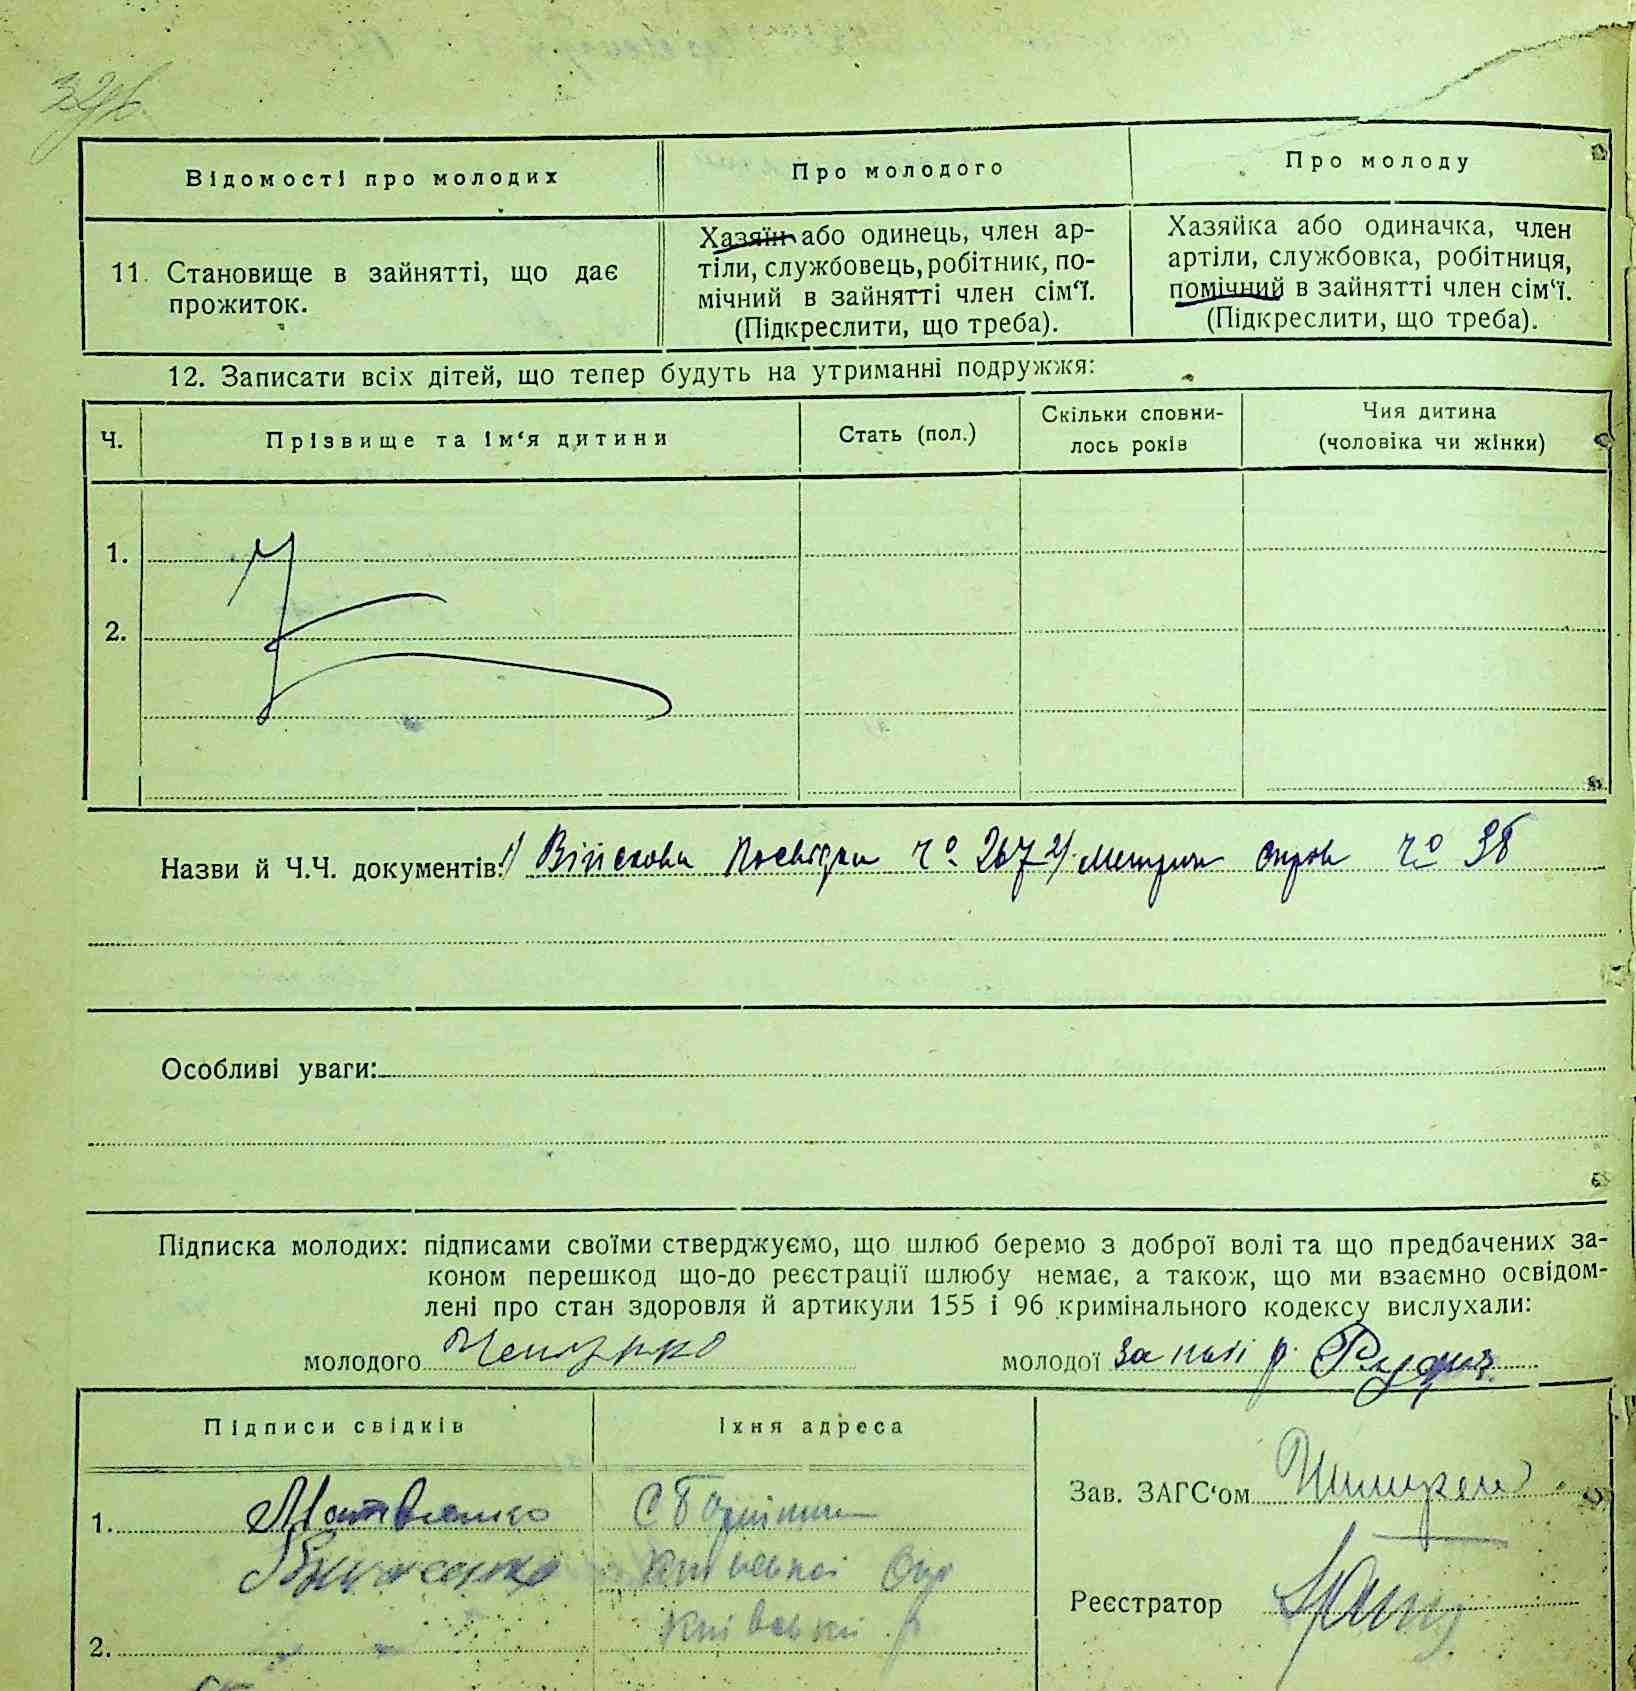 Відомості про молодих
Про молодого
Про молоду
11. Становище в зайнятті, що дає
прожиток.
Хазяїн або одинець, член ар-
тіли, службовець, робітник, по-
мічний в зайнятті член сім‘ї.
(Підкреслити, що треба).
Хазяйка або одиначка, член
артіли, службовка, робітниця,
помічний в зайнятті член сім‘ї.
(Підкреслити, що треба).
12. Записати всіх дітей, що тепер будуть на утриманні подружжя:
Ч.
Прізвище та ім‘я дитини
Стать (пол.)
Скільки сповни-
лось років
Чия дитина
(чоловіка чи жінки)
1.
2.
Назви й Ч.Ч. документів: 1) Військова посвідка Ч° 267 2)
Ч° 38
Особливі уваги:
Підписка молодих: підписами своїми стверджуємо, що шлюб беремо з доброї волі та що предбачених за-
коном перешкод що-до реєстрації шлюбу немає, а також, що ми взаємно освідом-
лені про стан здоровля й артикули 155 і 96 кримінального кодексу вислухали:
молодого
молодої за
Підписи свідків
Їхня адреса
1. Матвієнко
2.
Зав. ЗАГС‘ом
Реєстратор